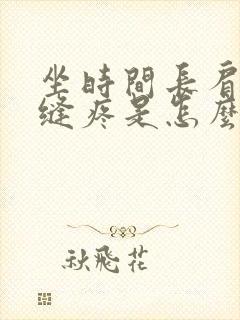 坐時間長肩
縫疼是怎麼
秋飛花